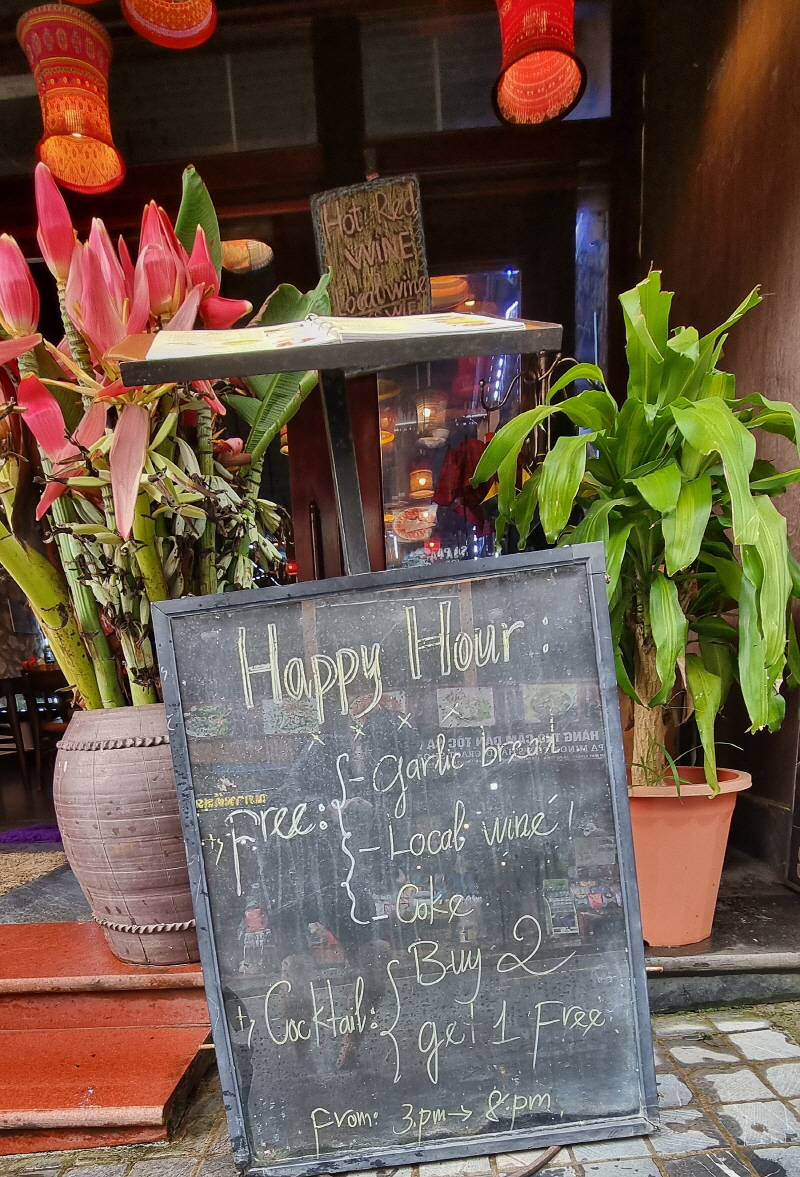 Hot Red
WINE
Local wine
Happy Hour :
x x x x
Free: - Garlic bread
- Local wine !
- Coke
Cocktail: Buy 2
get 1 Free.
From: 3.pm → 8.pm.